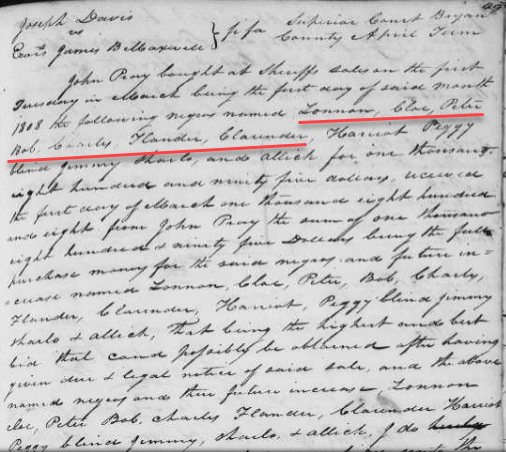 49
Joseph Davis
vs
Exors James B Maxwell } fi fa Superior Court Bryan
County April Term
John Pray bought at Sheriffs sales on the first
Tuesday in March being the first day of said month
1808 the following negroes named Lonnon, Cloe, Peter
Bob, Charles, Flander, Clarender, Harriot Peggy
blind Jimmy Sharlo, and allick for one thousand
eight hundred and ninity five dollars, received
the first day of March one thousand eight hundred
and eight from John Pray the sum of one thousand
eight hundred & ninity five Dollars being the full
purchase money for the said negroes and future in=
=crease named Lonnon, Cloe, Peter, Bob, Charly,
Flander, Clarender, Harriot, Peggy blind Jimmy
Sharlo & allick, that being the highest and best
bid that cand possibly be obtained after having
given due & legal notice of said sale, and the above
named negroes and their future increase, Lonnon
Cloe, Peter Bob, Charles Flander, Clarender Harriot
Peggy blind Jimmy, Sharlo, & allick, I do
the